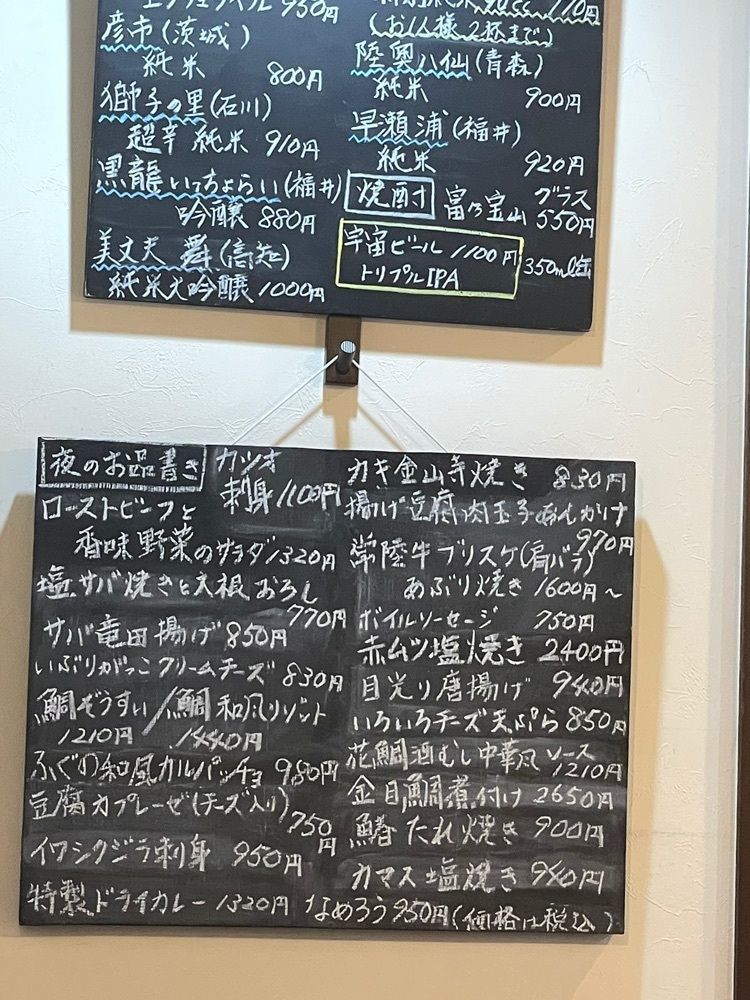 950円
彦市(茨城)
純米 800円
獅子の里(石川)
超辛 純米 910円
黒龍 いっちょらい(福井)
吟醸 880円
美丈夫 舞(高知)
純米大吟醸 1000円
110円
(お1人様2杯まで)
陸奥八仙(青森)
純米 900円
早瀬浦(福井)
純米 920円
焼酎 富乃宝山 グラス 550円
宇宙ビール 1100円
トリプルIPA 350ml缶
夜のお品書き
カツオ
刺身 1100円
ローストビーフと
香味野菜のサラダ 1320円
塩サバ焼きと大根おろし
770円
サバ竜田揚げ 850円
いぶりがっこクリームチーズ 830円
鯛ぞうすい/鯛和風リゾット
1210円 1440円
ふぐの和風カルパッチョ 980円
豆腐カプレーゼ(チーズ入り)
750円
イワシクジラ刺身 950円
特製ドライカレー 1320円
カキ金山寺焼き 830円
揚げ豆腐肉玉子あんかけ
970円
常陸牛ブリスケ(肩バラ)
あぶり焼き 1600円~
ボイルソーセージ 750円
赤ムツ塩焼き 2400円
目光り唐揚げ 940円
いろいろチーズ天ぷら 850円
花鯛酒むし中華風ソース
1210円
金目鯛煮付け 2650円
鰆たれ焼き 900円
カマス塩焼き 940円
なめろう 950円(価格は税込)